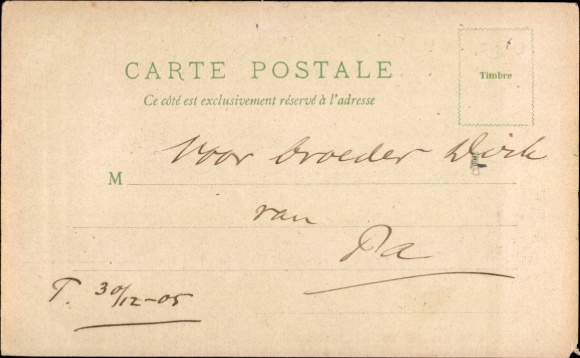 CARTE POSTALE
Ce côté est exclusivement réservé à l'adresse
Timbre
Voor broeder Dirk
M
van
Pa
T. 30/12-05